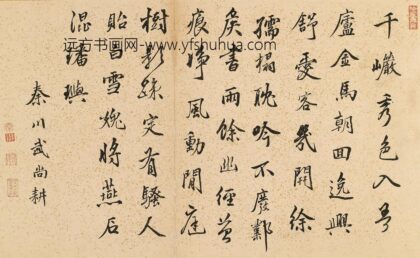 千巘秀色入吾
廬金馬朝回逸興
舒愛客幾開徐
孺榻耽吟不廢鄴
侯書雨餘幽徑苔
痕淨風動閒庭
樹影疎定有騷人
貽白雪愧將燕石
混璠璵
秦川武尚耕
远方书画网-www.yfshuhua.com